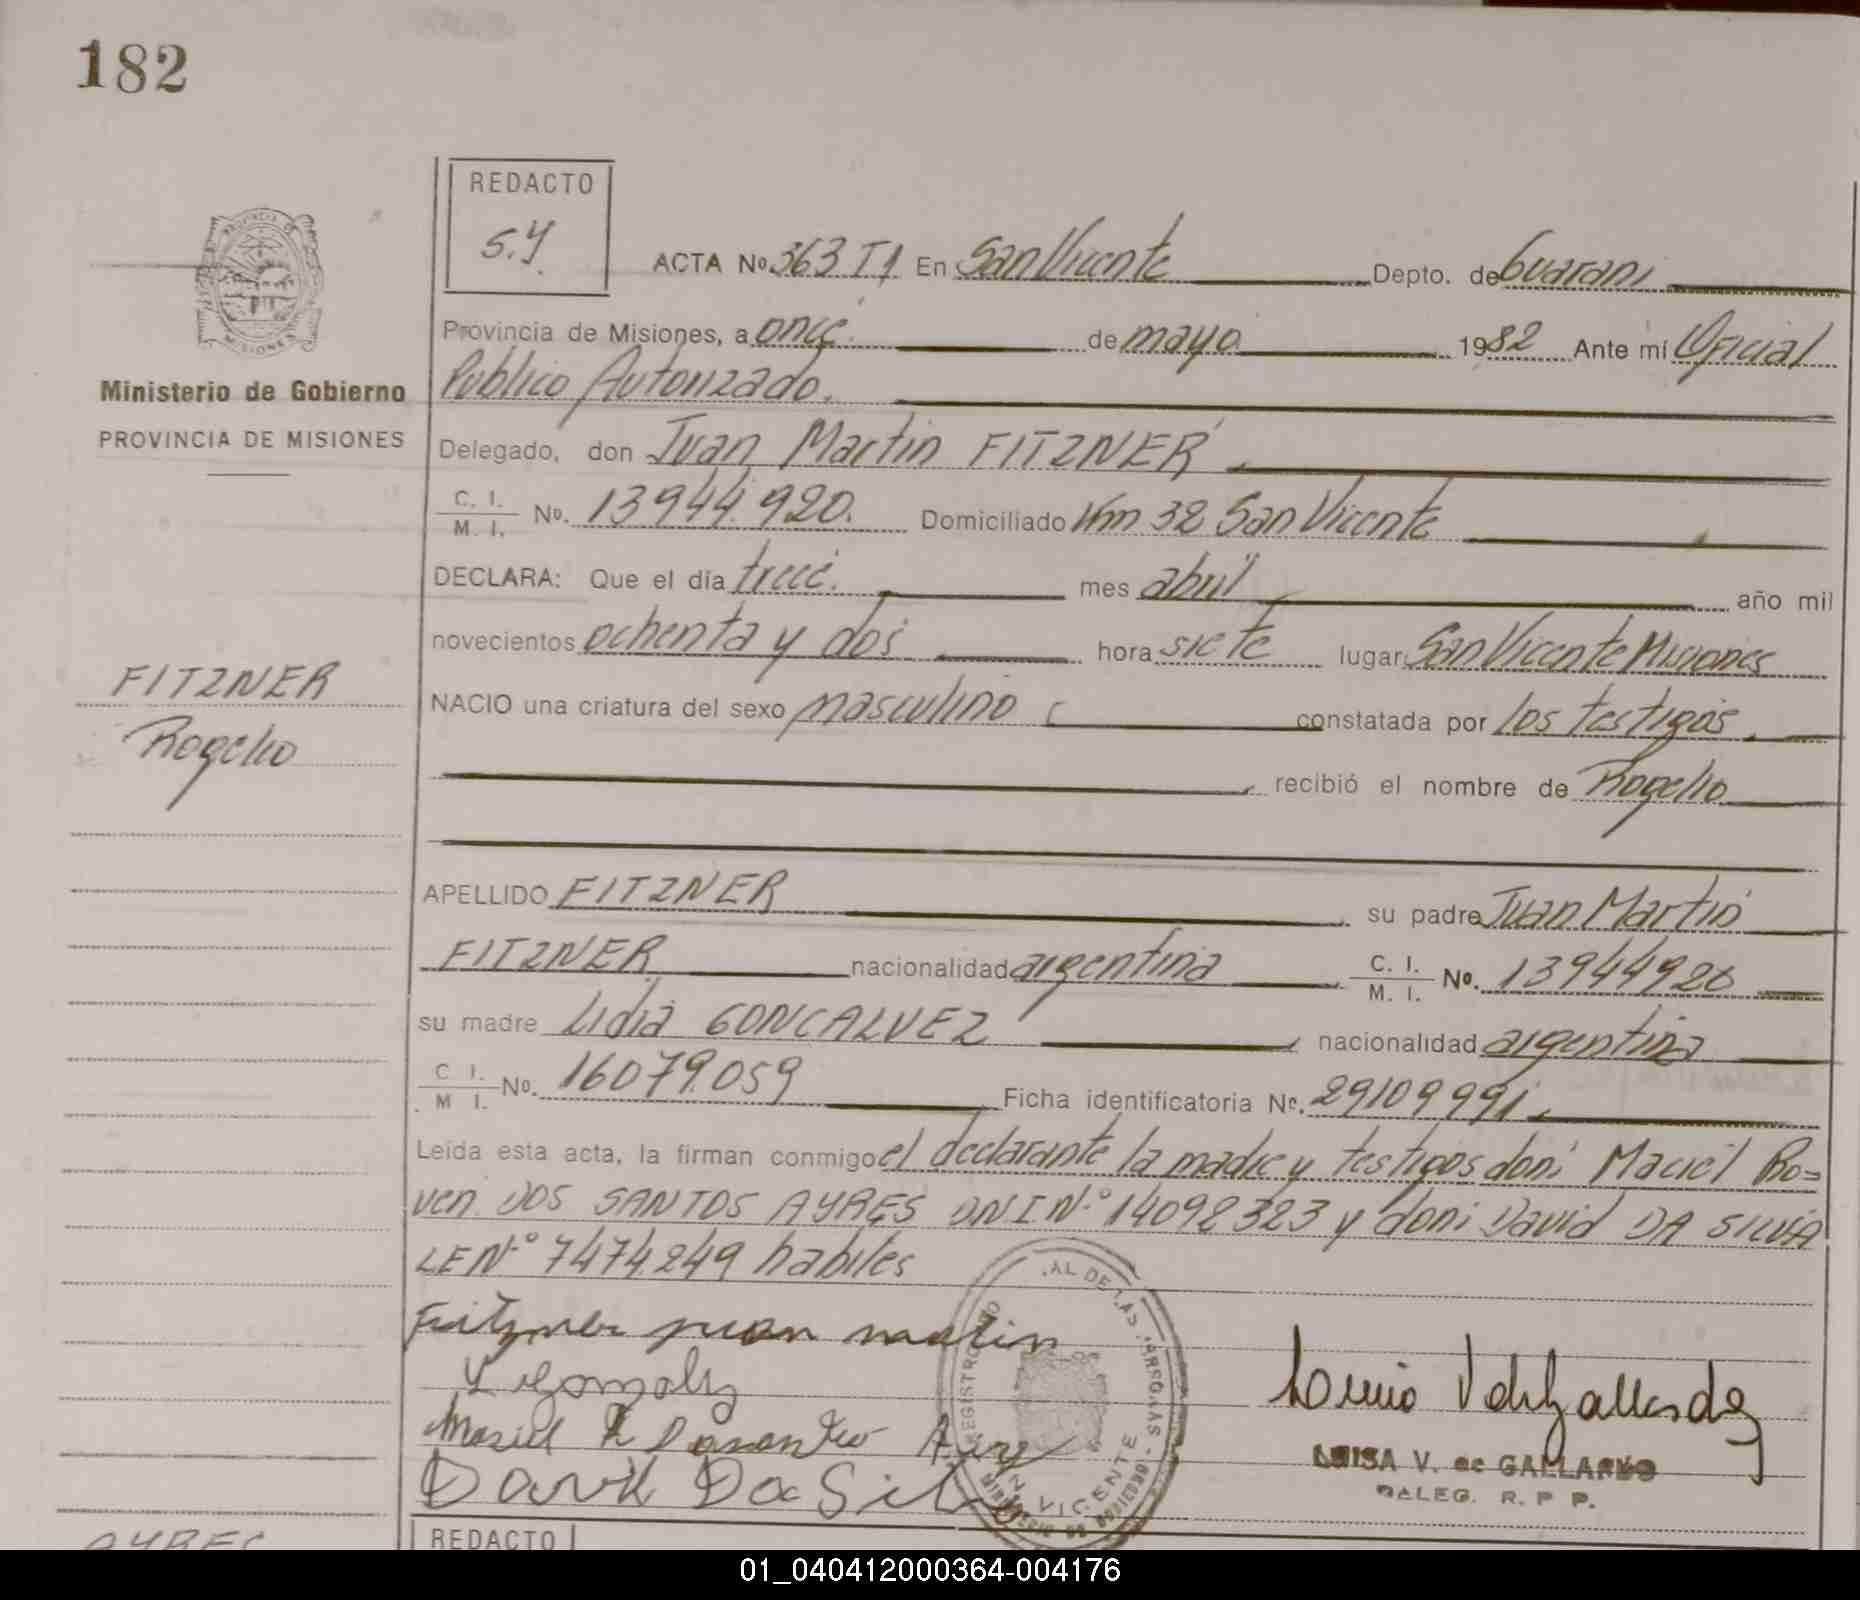 182
REDACTO
S.Y.
ACTA No. 363 T1 En San Vicente Depto. de Guarani
Provincia de Misiones, a once de mayo 1982 Ante mí Oficial
Publico Autorizado.
Ministerio de Gobierno
PROVINCIA DE MISIONES
Delegado, don Juan Martin FITZNER
C. I.
M. I. No. 13944.920. Domiciliado Km 32 San Vicente
DECLARA: Que el día trece. mes abril año mil
novecientos ochenta y dos hora siete lugar San Vicente Misiones
FITZNER
Rogelio
NACIO una criatura del sexo masculino constatada por los testigos.
recibió el nombre de Rogelio
APELLIDO FITZNER su padre Juan Martin
FITZNER nacionalidad argentina C. I.
M. I. No. 13944920
su madre Lidia GONCALVEZ nacionalidad argentina
C. I.
M. I. No. 16079.059 Ficha identificatoria No. 29109991.
Leída esta acta, la firman conmigo el declarante la madre y testigos don: Maciel Ro=
ven DOS SANTOS AYRES DNI Nº 14092323 y don: David DA SILVA
LE Nº 7474.249 habiles
Fitzner juan martin
David Da Silva
LUISA V. de GALLARDO
DELEG. R. P. P.
VICENTE
AYRES
REDACTO
01_040412000364-004176